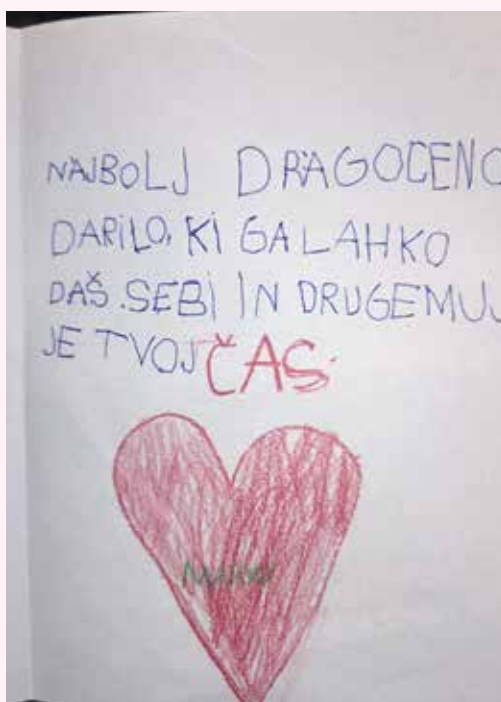 NAJBOLJ DRAGOCENO
DARILO, KI GA LAHKO
DAŠ SEBI IN DRUGEMU,
JE TVOJ ČAS.